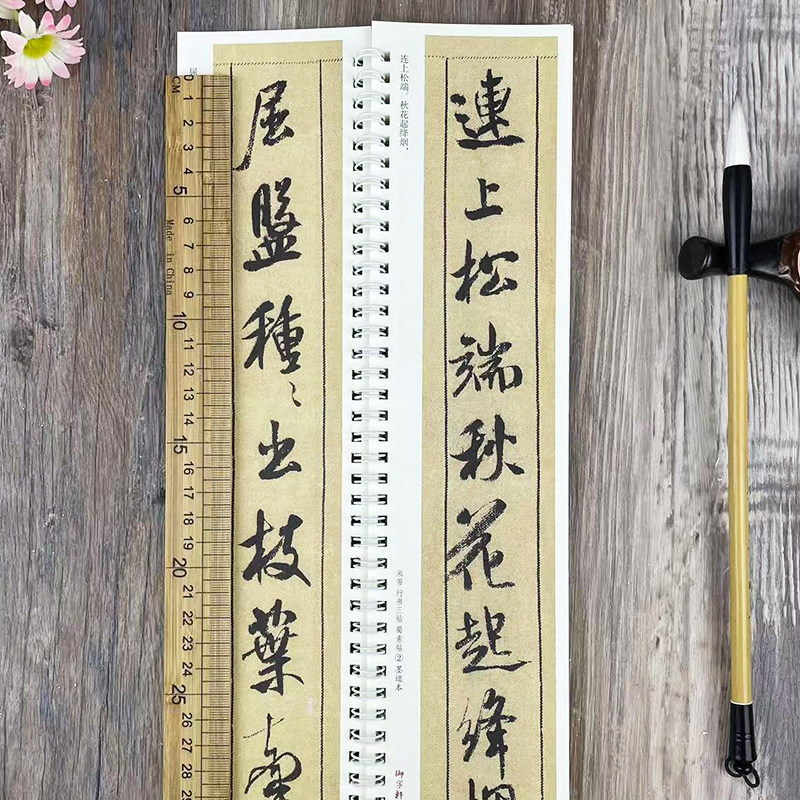 连上松端。秋花起绛烟，
連上松端秋花起絳
米芾 行书三帖 蜀素帖② 墨迹本
御字軒
屈盤種〻出枝葉牽
CM
0 1 2 3 4 5 6 7 8 9 10 11 12 13 14 15 16 17 18 19 20 21 22 23 24 25 26 27 28 29
Made in China